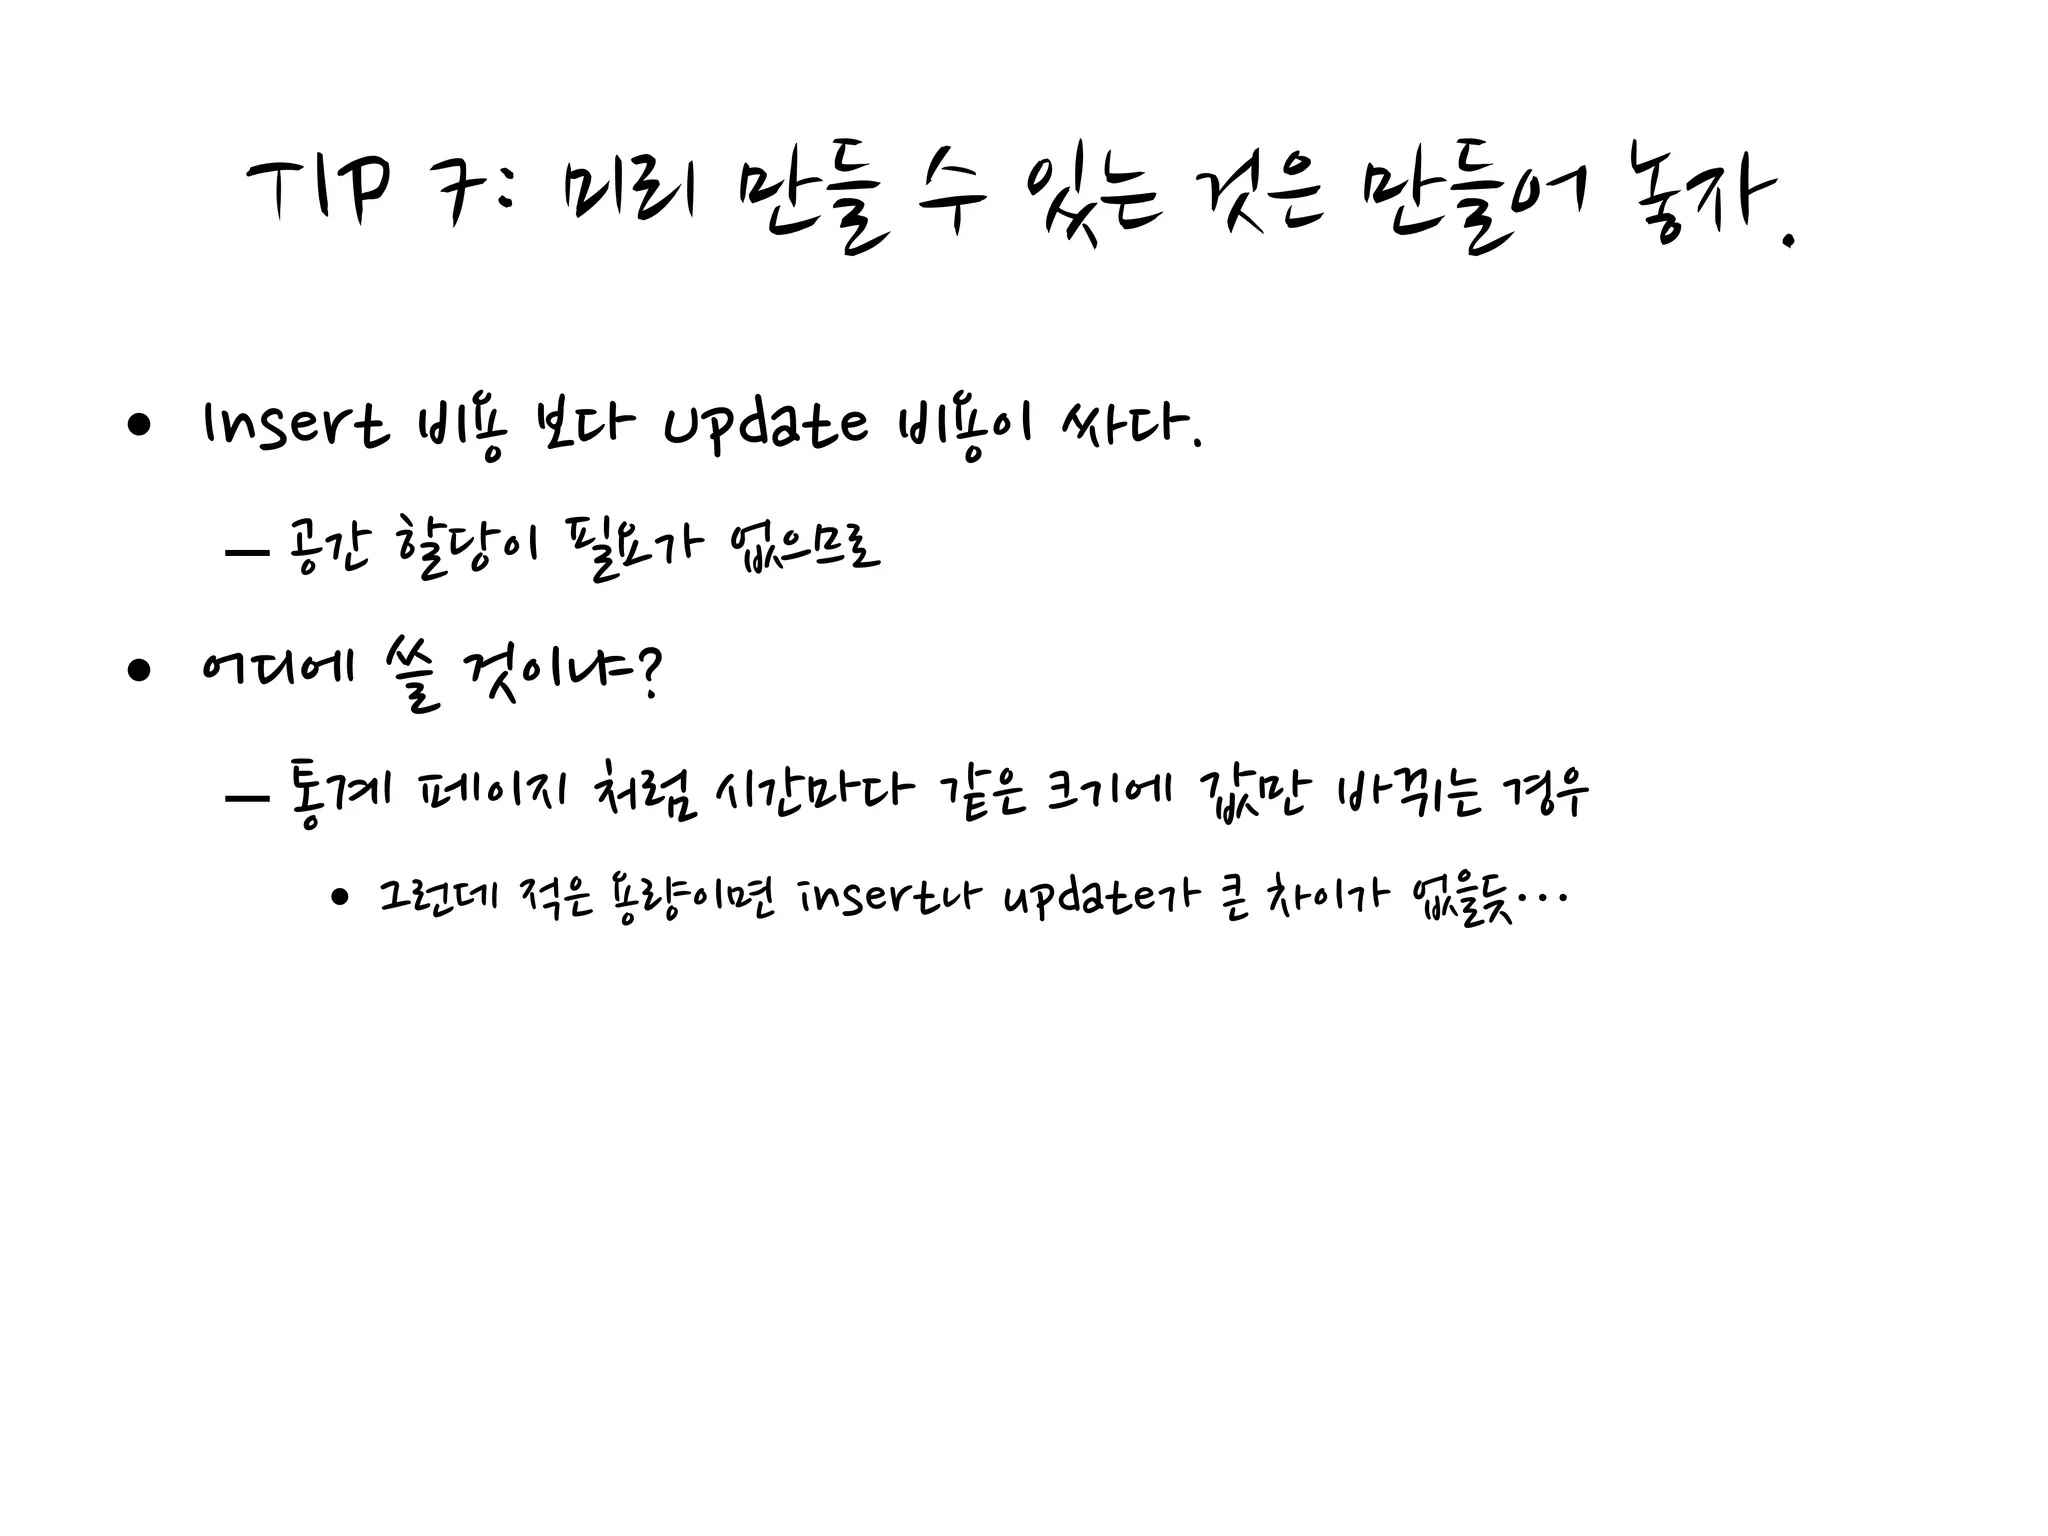 TIP 7: 미리 만들 수 있는 것은 만들어 놓자.
• Insert 비용 보다 update 비용이 싸다.
– 공간 할당이 필요가 없으므로
• 어디에 쓸 것이냐?
– 통계 페이지 처럼 시간마다 같은 크기에 값만 바뀌는 경우
• 그런데 적은 용량이면 insert나 update가 큰 차이가 없을듯…